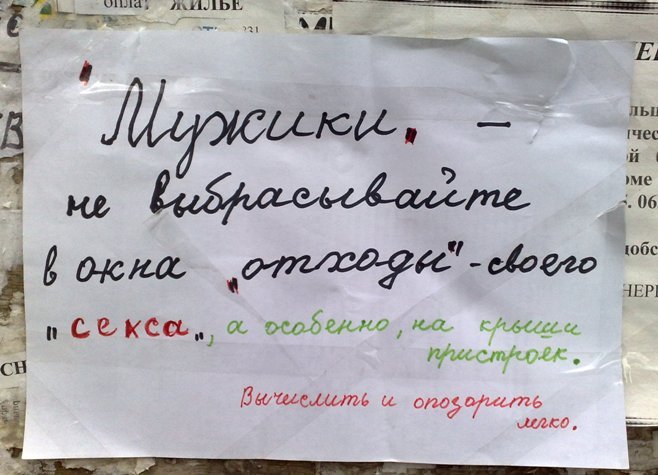 оплат ЖИЛЬЕ
"Мужики" –
не выбрасывайте
в окна „отходы" - своего
"секса", а особенно, на крыши
пристроек.
Вычислить и опозорить
легко.